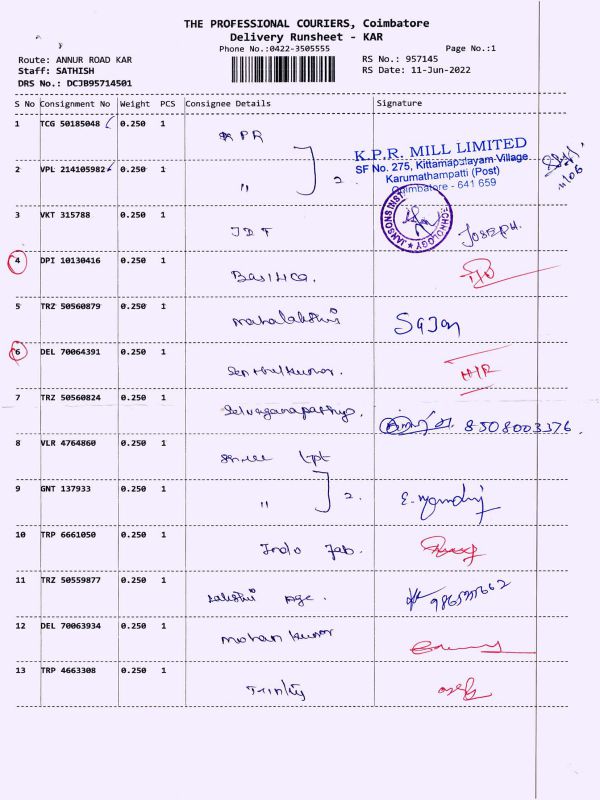 THE PROFESSIONAL COURIERS, Coimbatore
Delivery Runsheet - KAR
Phone No.:0422-3505555
Page No.:1
Route: ANNUR ROAD KAR
RS No.: 957145
Staff: SATHISH
RS Date: 11-Jun-2022
DRS No.: DCJB95714501
S No Consignment No Weight PCS Consignee Details Signature
1 TCG 50185048 0.250 1 KPR
K.P.R. MILL LIMITED
SF No. 275, Kittampalayam Village
Karumathampatti (Post)
Coimbatore - 641 659
2 VPL 214105982 0.250 1 " 2
11/06
3 VKT 315788 0.250 1 JDF JOSEPH.
JANSONS INST TECHNOLOGY
4 DPI 10130416 0.250 1
5 TRZ 50560879 0.250 1 Mahalakshmi Sajan
6 DEL 70064391 0.250 1 Senthilkumar.
7 TRZ 50560824 0.250 1 Selvaganapathy. 8508003376.
8 VLR 4764860 0.250 1 Shree
9 GNT 137933 0.250 1 " 2.
10 TRP 6661050 0.250 1 Indo Fab.
11 TRZ 50559877 0.250 1 Lakshmi Age.
12 DEL 70063934 0.250 1 Mohan Kumar
13 TRP 4663308 0.250 1 Trinity